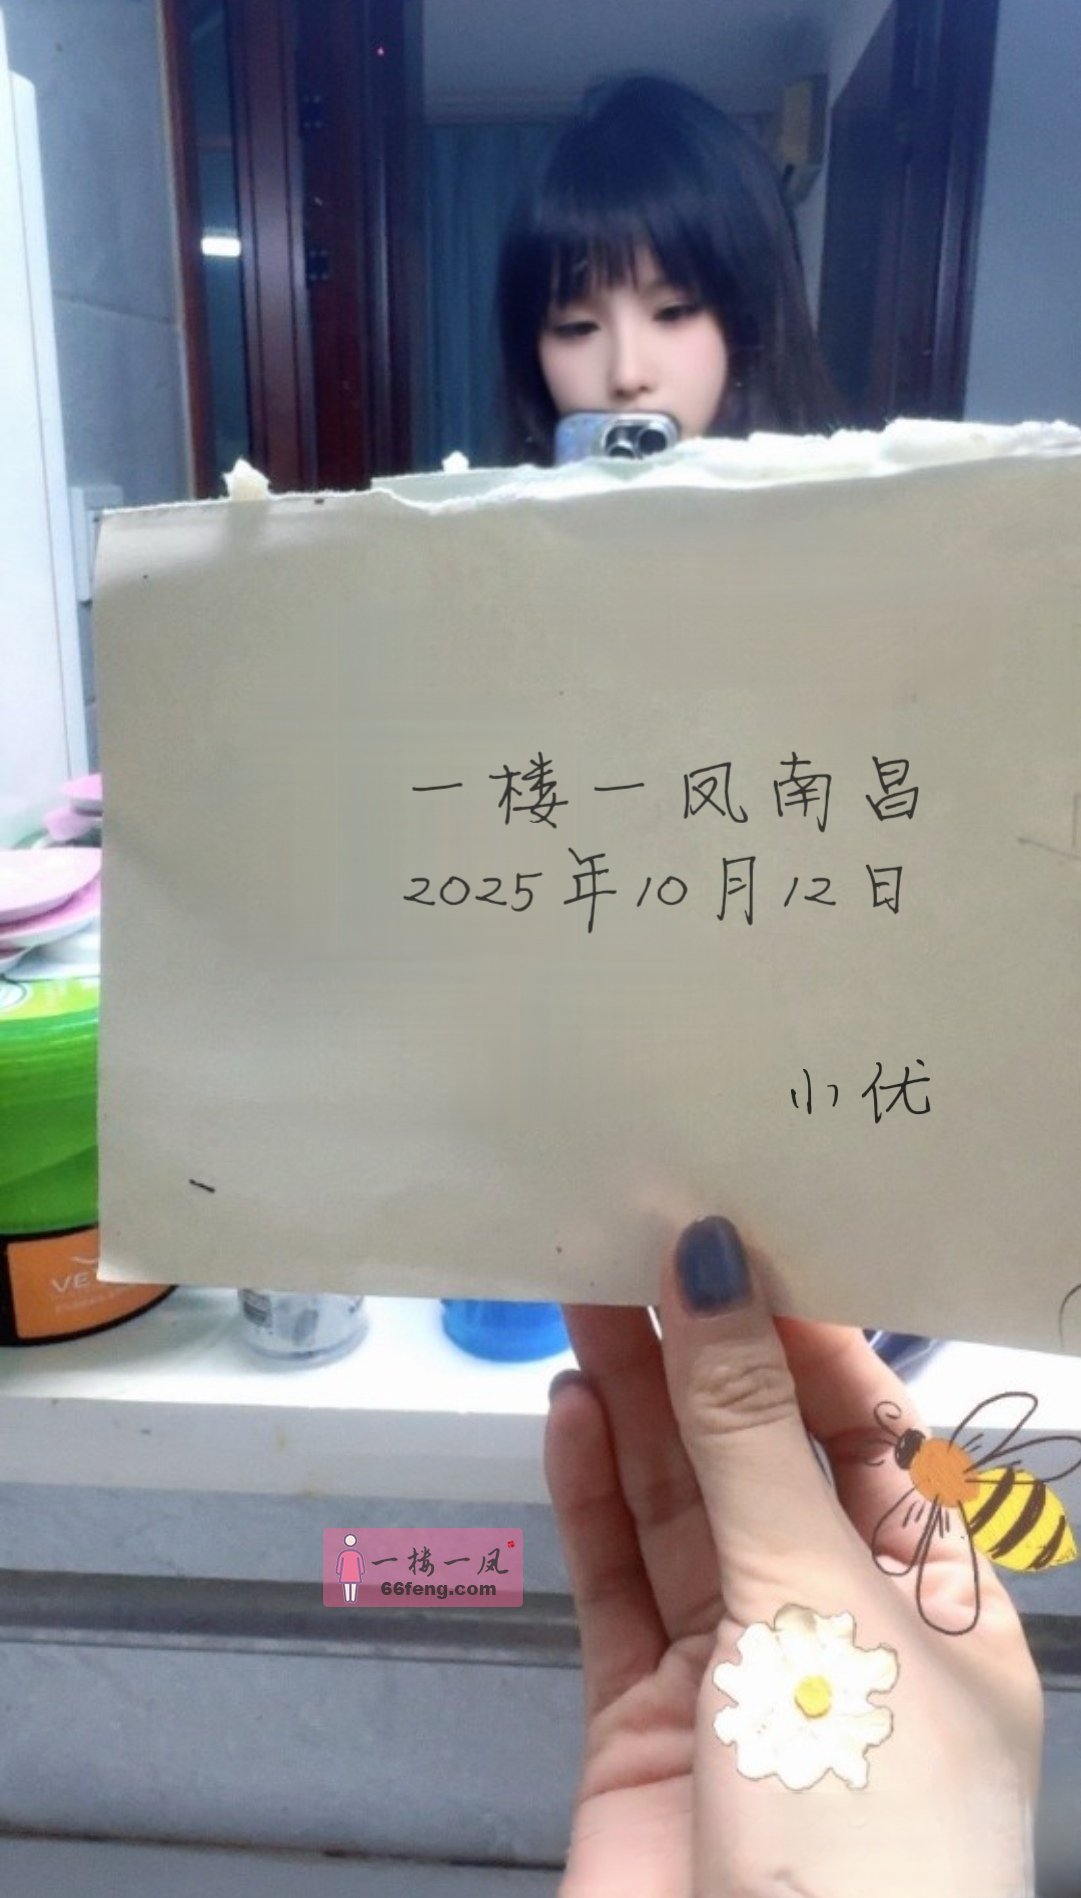 一楼一凤南昌
2025年10月12日
小优
一楼一凤
66feng.com